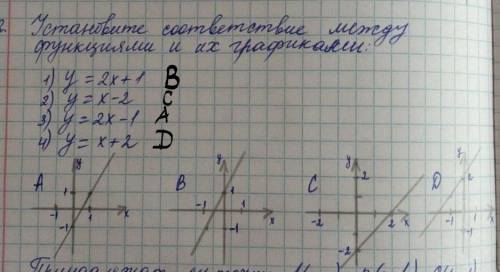 2. Установите соответствие между
функциями и их графиками:
1) y = 2x+1 B
2) y = x-2 C
3) y = 2x-1 A
4) y = x+2 D
A y 1 -1 1 -1 x
B y 1 -1 -1 x
C y 2 -2 2 -2 x
D y -1 -1